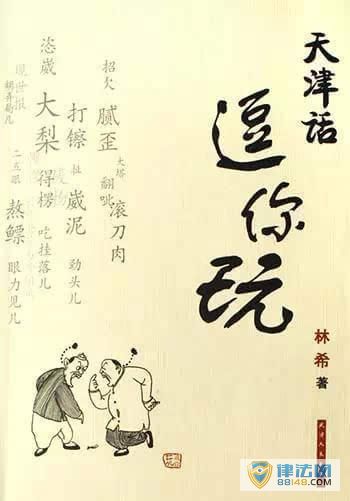 天津话
逗你玩
林希 著
招欠
腻歪
大塔
翻呲
滚刀肉
打镲
扯
崴泥
劲头儿
恣崴
大梨
得楞
吃挂落儿
现世报
胡弄局儿
二五眼
熬鳔
眼力见儿
律法网
88148.com